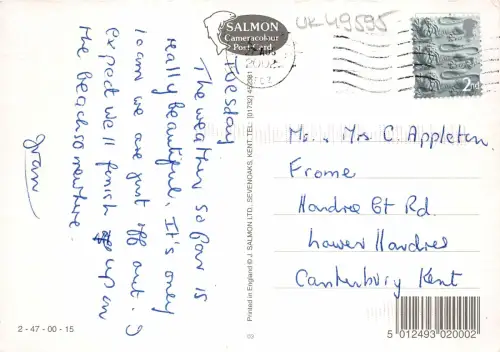 SALMON
Cameracolour
Post Card
UK49595
2002
2ND
Tuesday
The weather so far is
really beautiful. It's only
10am we are just off out. I
expect we'll finish up on
the beach somewhere.
Mr. , Mrs C. Appleton.
Frome
Hardres Ct Rd.
Lower Hardres
Canterbury Kent
Printed in England © J. SALMON LTD., SEVENOAKS, KENT. TEL. (01732) 452381
2 - 47 - 00 - 15
5 012493 020002